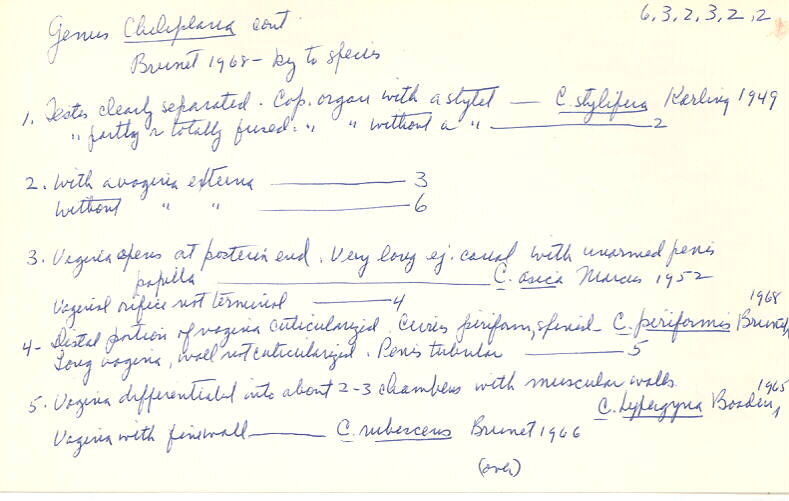 6, 3, 2, 3, 2, 2
Genus Cheliplana cont
Brunet 1968 - key to species
1. Testes clearly separated. Cop. organ with a stylet — C. stylifera Karling 1949
" partly or totally fused. " " without a " — 2
2. With a vagina externa — 3
Without " " — 6
3. Vagina opens at posterior end. Very long ej. canal with unarmed penis
papilla — C. asica Marcus 1952
Vaginal orifice not terminal — 4
4 - Distal portion of vagina cuticularized. Cirrus piriform, spined - C. piriformis Brunet, 1968
Long vagina, wall not cuticularized. Penis tubular — 5
5. Vagina differentiated into about 2-3 chambers with muscular walls
C. hypergyna Boaden, 1965
Vagina with fine wall — C. rubescens Brunet 1966
(over)